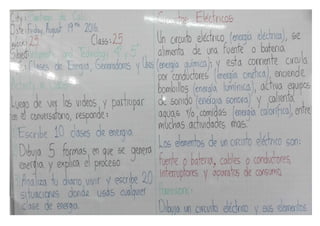 City: Santiago de Cali
Date: Friday, August 19th 2016.
Grade: 23 Class: 25
Science and Technology 4° y 5°
Clases de Energía, Generadores y Usos
Luego de ver los videos, y participar
en el conversatorio, responde:
Escribe 10 clases de energía
Dibuja 5 formas, en que se genera
energía, y explica el proceso
Analiza tu diario vivir y escribe 20
situaciones donde usas cualquier
clase de energía.
Circuitos Eléctricos
Un circuito eléctrico, (energía eléctrica), se
alimenta de una fuente o batería
(energía química), y esta corriente circula
por conductores (energía cinética), enciende
bombillos (energía lumínica), activa equipos
de sonido (energía sonora) y calienta
aguas y/o comidas (energía calórica), entre
muchas actividades más."
Los elementos de un circuito eléctrico son:
fuente o batería, cables o conductores,
interruptores y aparatos de consumo
Dibuja un circuito eléctrico y sus elementos